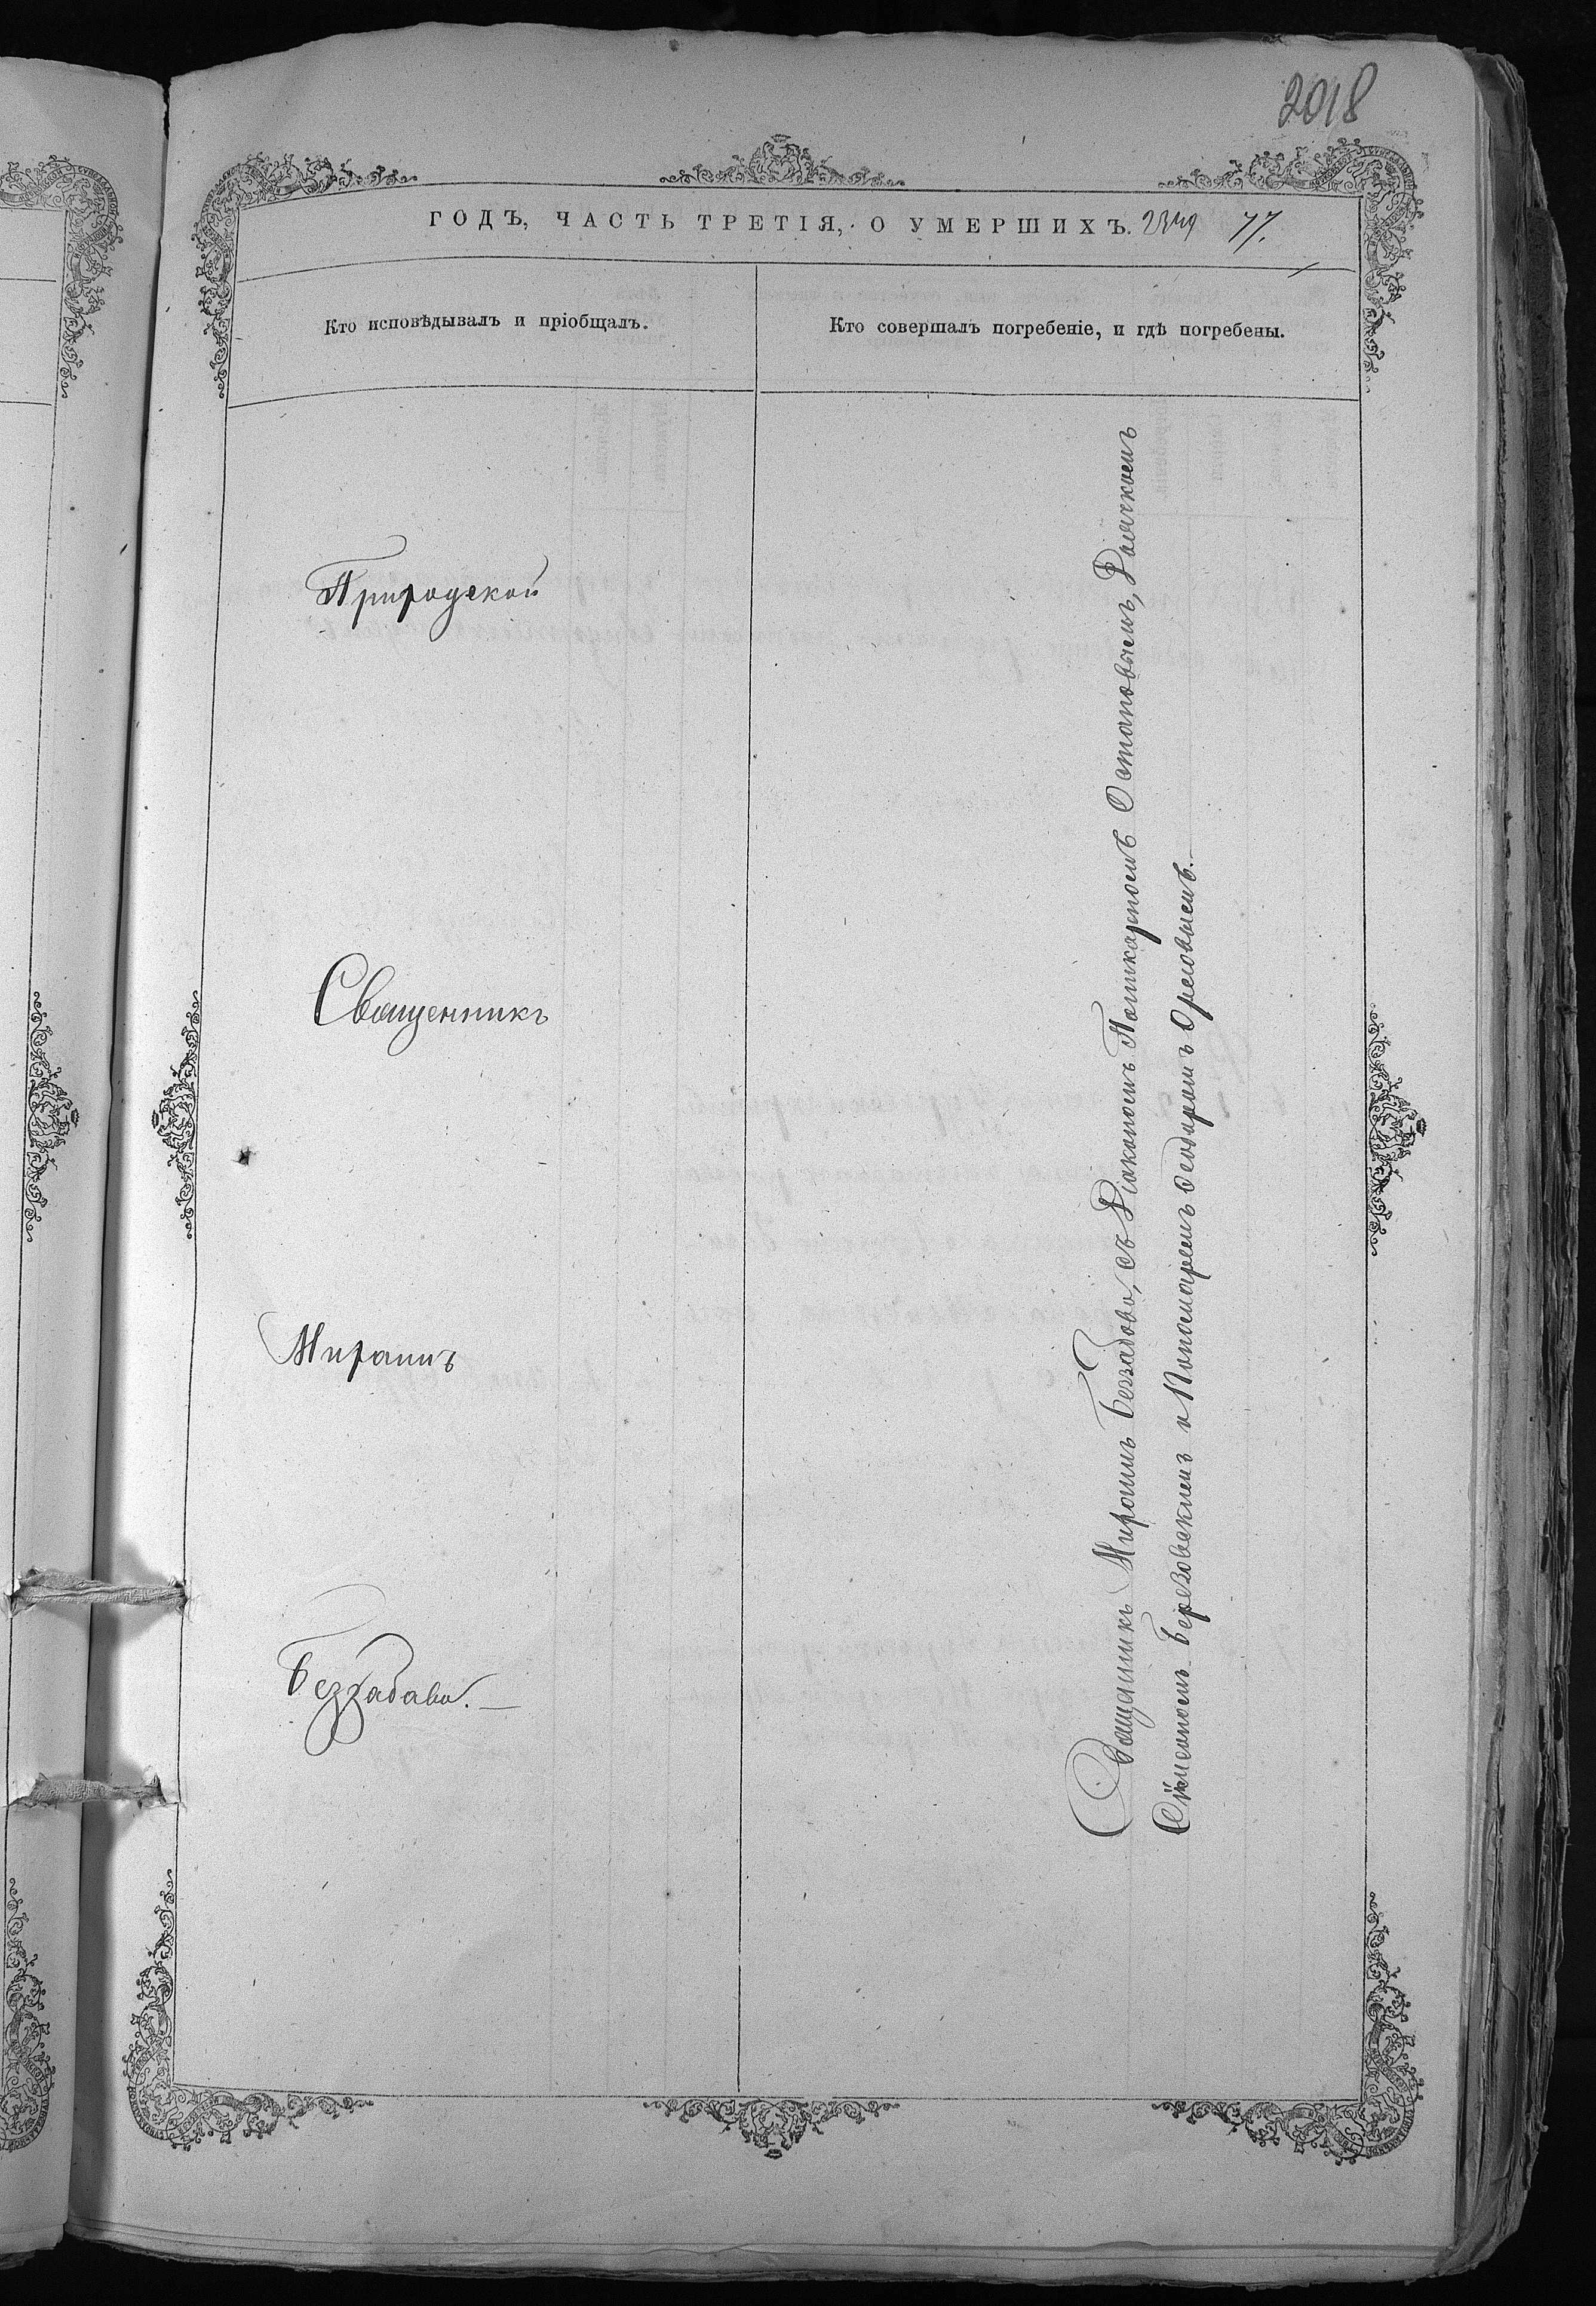 2018
ГОДЪ, ЧАСТЬ ТРЕТІЯ, О УМЕРШИХЪ. 77.
Кто исповѣдывалъ и пріобщалъ.
Кто совершалъ погребеніе, и гдѣ погребены.
Приходской
Священникъ
Миронъ
Беззабава.
Священникъ Миронъ Беззабава, съ Діакономъ Поликарпомъ Остаповымъ, Дьячкомъ
Сѵмеономъ Березовскимъ и Пономаремъ Ѳеодоромъ Орловымъ.